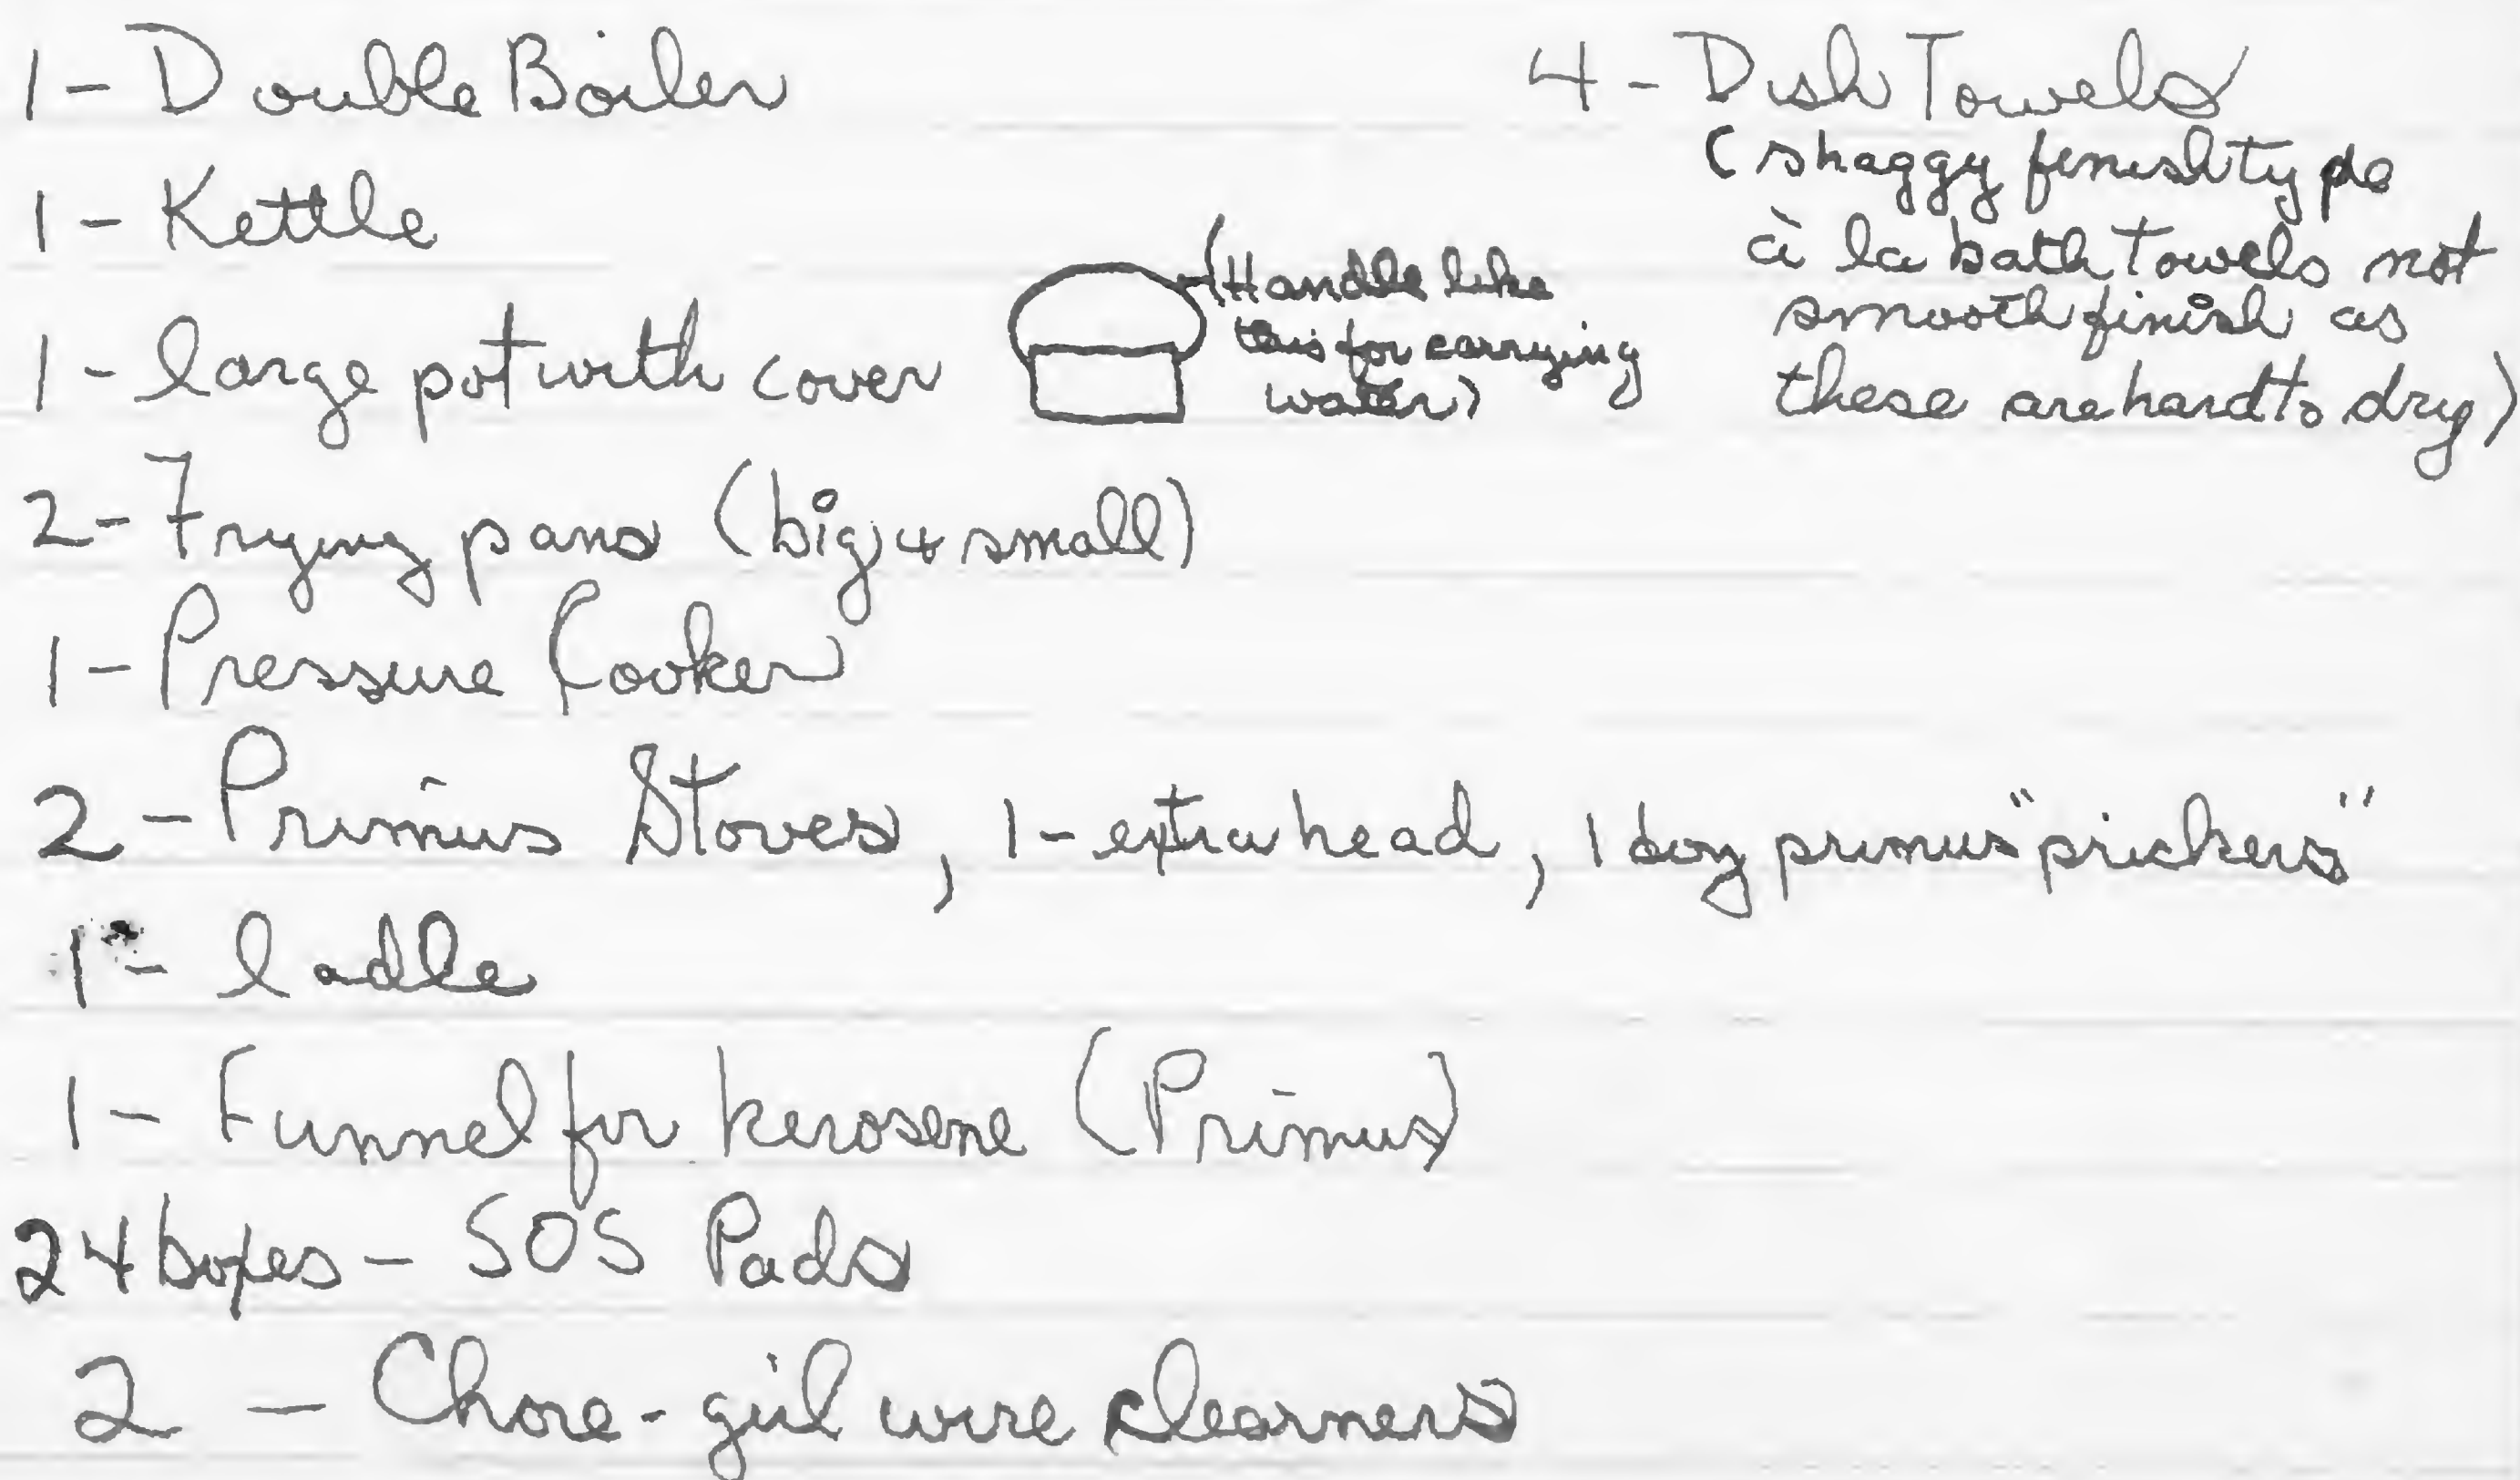 1 - Double Boiler
1 - Kettle
1 - large pot with cover
(Handle like
this for carrying
water)
2 - Frying pans (big & small)
1 - Pressure Cooker
2 - Primus Stoves, 1 - extra head, 1 box primus "prickers"
1 - ladle
1 - Funnel for kerosene (Primus)
24 boxes - SOS Pads
2 - Chore-girl wire cleaners
4 - Dish Towels
(shaggy finish type
à la bath towels not
smooth finish as
these are hard to dry)